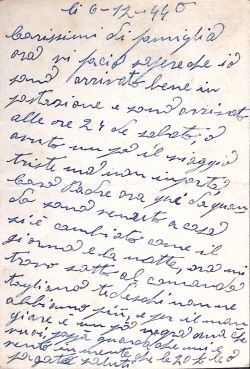 li 6-12-44
Carissimi di famiglia
ora vi facio sapere che io
sono arrivato bene in
postazione e sono arrivato
alle ore 24 de sabato o
avuto un po il viaggio
triste ma non importa
Caro Padre ora qua da quan
do sono venuto a casa
si è cambiato come il
giorno e la notte, ora mi
trovo sotto al comando
tagliano tedeschi non ne
abbiamo più, e per il man
giare è un po magra ma